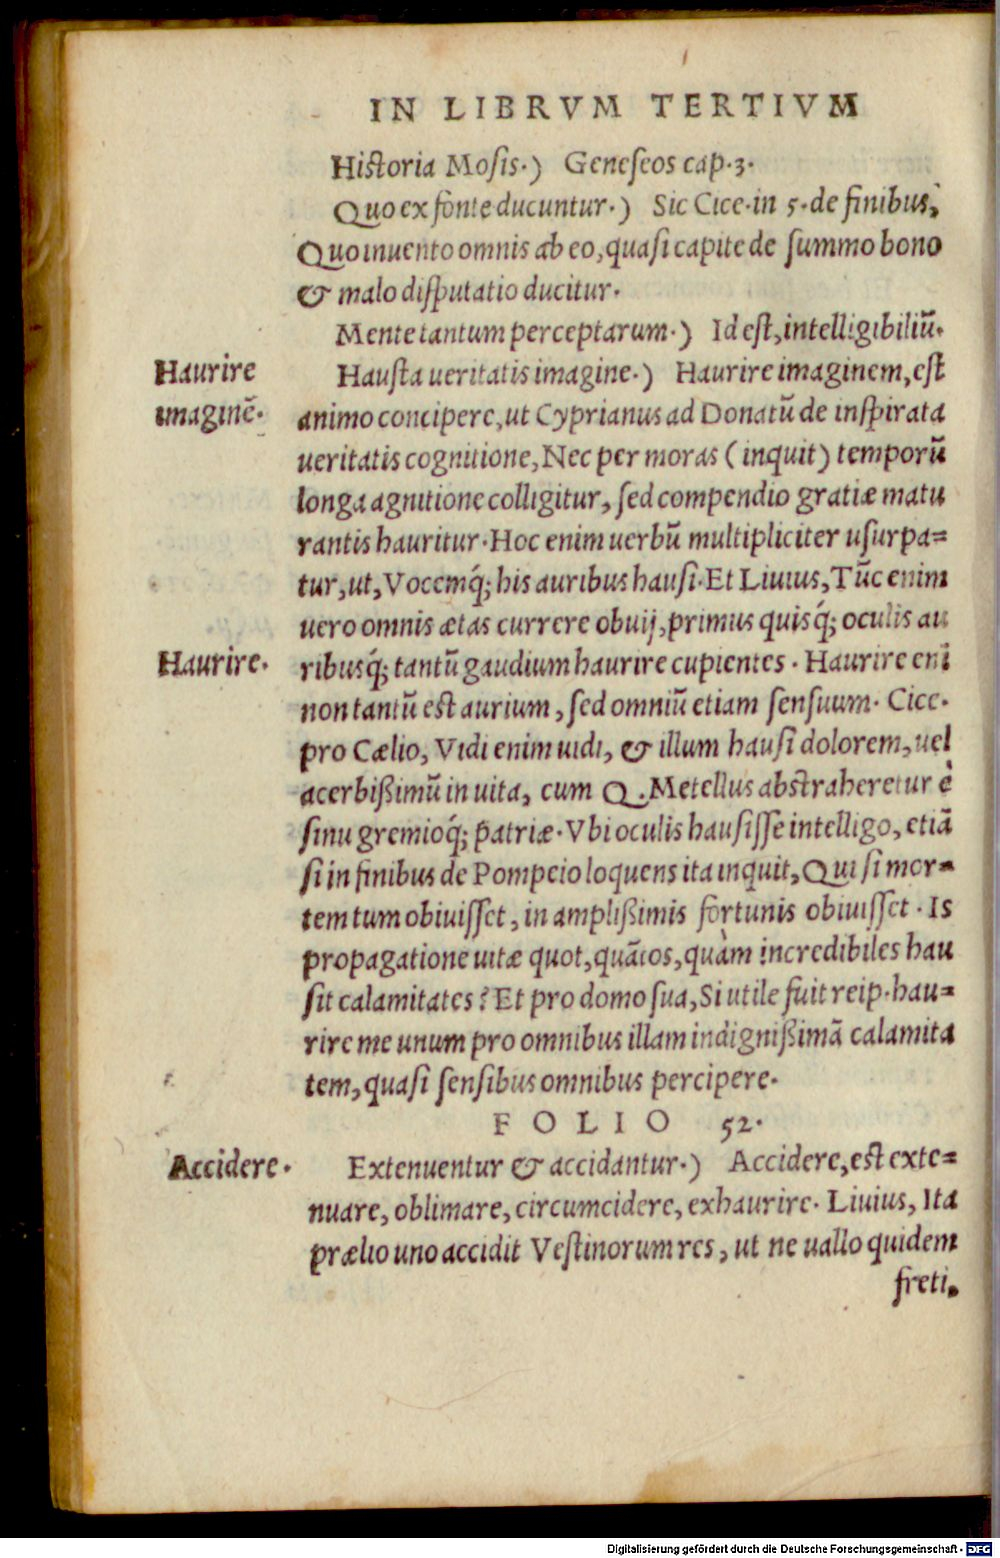 IN LIBRVM TERTIVM
Historia Mosis.) Geneseos cap.3.
Quo ex fonte ducuntur.) Sic Cice.in 5.de finibus,
Quo inuento omnis ab eo, quasi capite de summo bono
& malo disputatio ducitur.
Mente tantum perceptarum.) Id est, intelligibiliũ.
Haurire
imaginẽ.
Hausta ueritatis imagine.) Haurire imaginem, est
animo concipere, ut Cyprianus ad Donatũ de inspirata
ueritatis cognitione, Nec per moras (inquit) temporũ
longa agnitione colligitur, sed compendio gratiæ matu
rantis hauritur. Hoc enim uerbũ multipliciter usurpa=
tur, ut, Vocemq́; his auribus hausi. Et Liuius, Tũc enim
uero omnis ætas currere obuij, primus quisq́; oculis au
Haurire.
ribusq́; tantũ gaudium haurire cupientes. Haurire eni
non tantũ est aurium, sed omniũ etiam sensuum. Cice.
pro Cælio, Vidi enim uidi, & illum hausi dolorem, uel
acerbißimũ in uita, cum Q. Metellus abstraheretur è
sinu gremioq́; patriæ. Vbi oculis hausisse intelligo, etiã
si in finibus de Pompeio loquens ita inquit, Qui si mor=
tem tum obiuisset, in amplißimis fortunis obiuisset. Is
propagatione uitæ quot, quãtos, quàm incredibiles hau
sit calamitates? Et pro domo sua, Si utile fuit reip. hau=
rire me unum pro omnibus illam indignißimã calamita
tem, quasi sensibus omnibus percipere.
FOLIO 52.
Accidere.
Extenuentur & accidantur.) Accidere, est exte=
nuare, oblimare, circumcidere, exhaurire. Liuius, Ita
prælio uno accidit Vestinorum res, ut ne uallo quidem
freti.
Digitalisierung gefördert durch die Deutsche Forschungsgemeinschaft - DFG